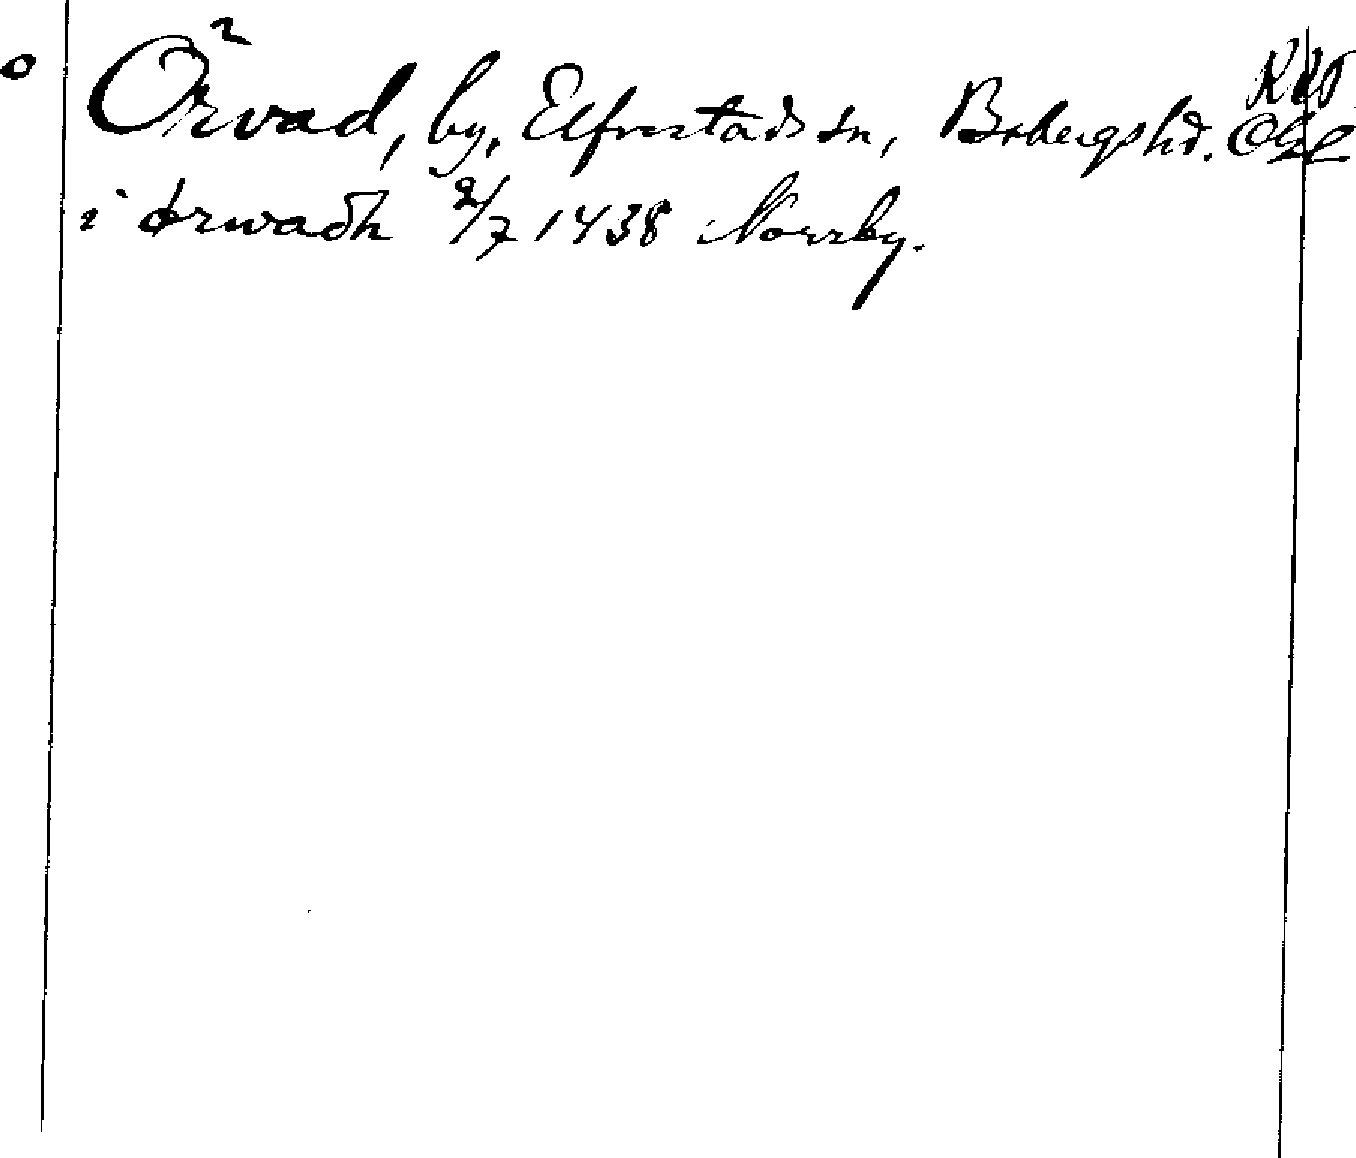 Örvad, by, Elfvestads sn, Bobergs hd. Ögl
i ørwadh 2/7 1438 Norrby.